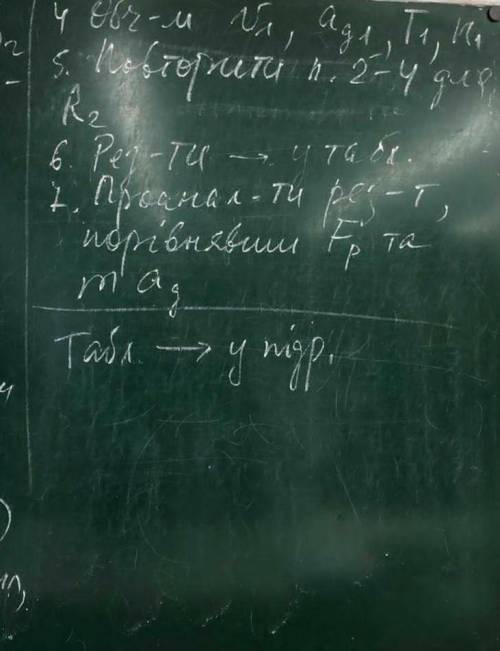 4 Обч-м υ₁, aд₁, T₁, n₁
5. Повторити п. 2-4 для
R₂
6. Рез-ти → у табл.
7. Проанал-ти рез-т,
порівнявши Fр та
m aд
Табл. → у підр.